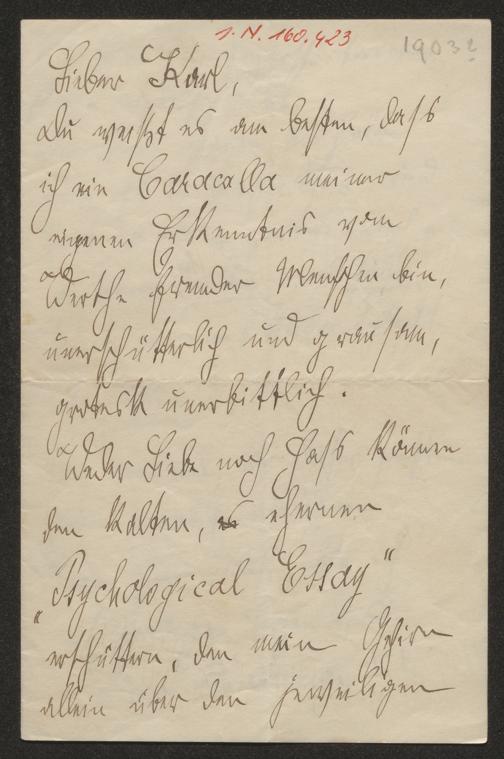 I. N. 160.423
1903?
Lieber Karl,
Du weisst es am besten, dass
ich ein Caracalla meiner
eigenen Erkenntnis vom
Werthe fremder Menschen bin,
unerschütterlich und grausam,
grotesk unerbittlich.
Weder Liebe noch Hass können
den kalten, ehernen
„Psychological Essay"
erschüttern, den mein Gehirn
allein über den jeweiligen